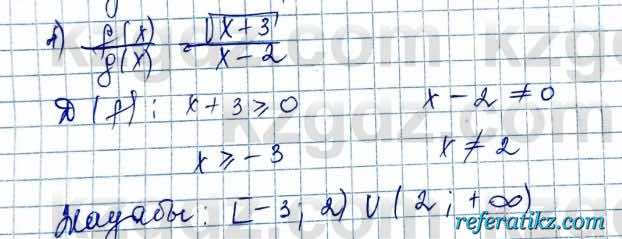 1) f(x)/g(x) = √(x+3)/(x-2)
D(f): x+3 ⩾ 0   x-2 ≠ 0
x ⩾ -3   x ≠ 2
Жауабы: [-3; 2) ∪ (2; +∞)
referatikz.com